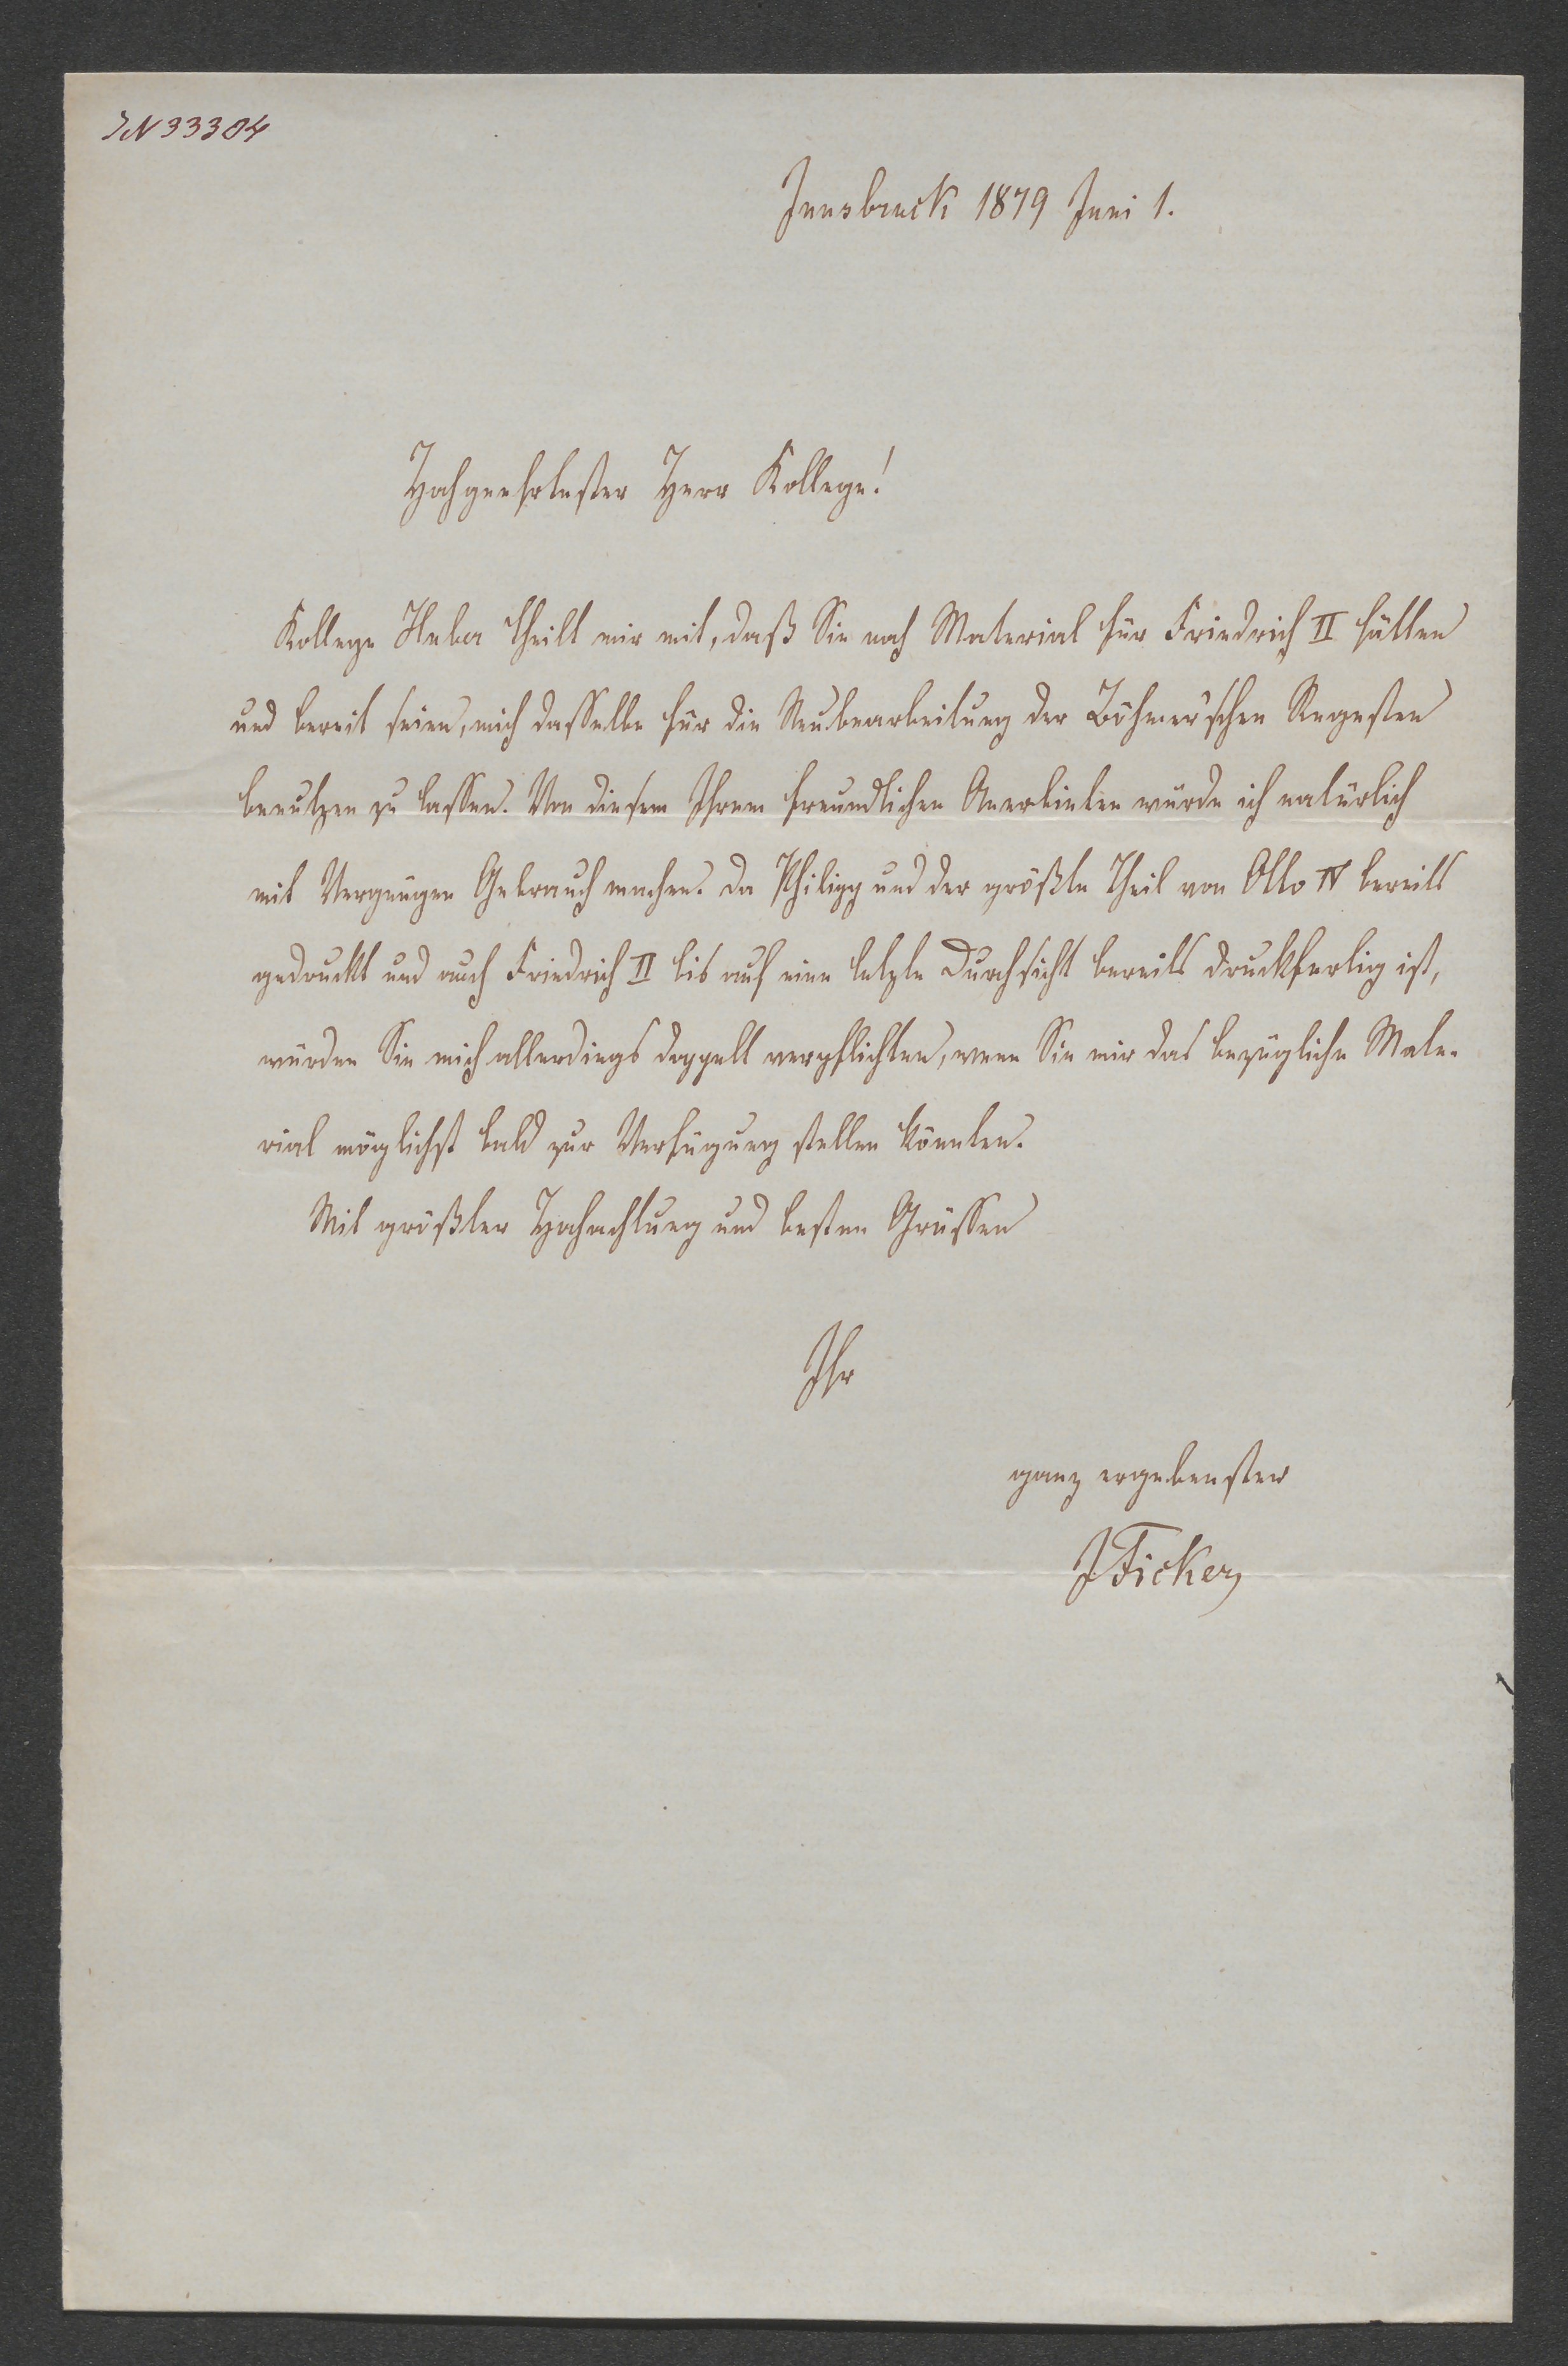 IN 33304
Innsbruck 1879 Juni 1.
Hochgeehrtester Herr Kollege!
Kollege Huber theilt mir mit, daß Sie noch Material für Friedrich II hätten
und bereit seien, mich dasselbe für die Neubearbeitung der Böhmer'schen Regesten
benutzen zu lassen. Von diesem Ihrem freundlichen Anerbieten würde ich natürlich
mit Vergnügen Gebrauch machen. Da Philipp und der größte Theil von Otto IV bereits
gedruckt und auch Friedrich II bis auf eine letzte Durchsicht bereits druckfertig ist,
würden Sie mich allerdings doppelt verpflichten, wenn Sie mir das bezügliche Mate-
rial möglichst bald zur Verfügung stellen könnten.
Mit größter Hochachtung und besten Grüssen
Ihr
ganz ergebenster
J Ficker